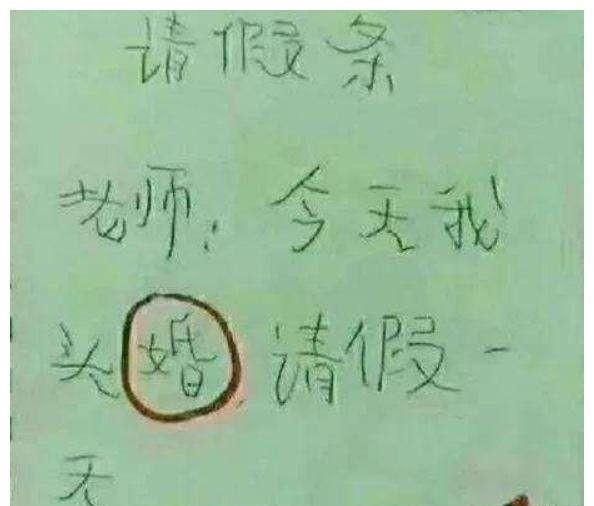 请假条
老师：今天我
头婚，请假一
天